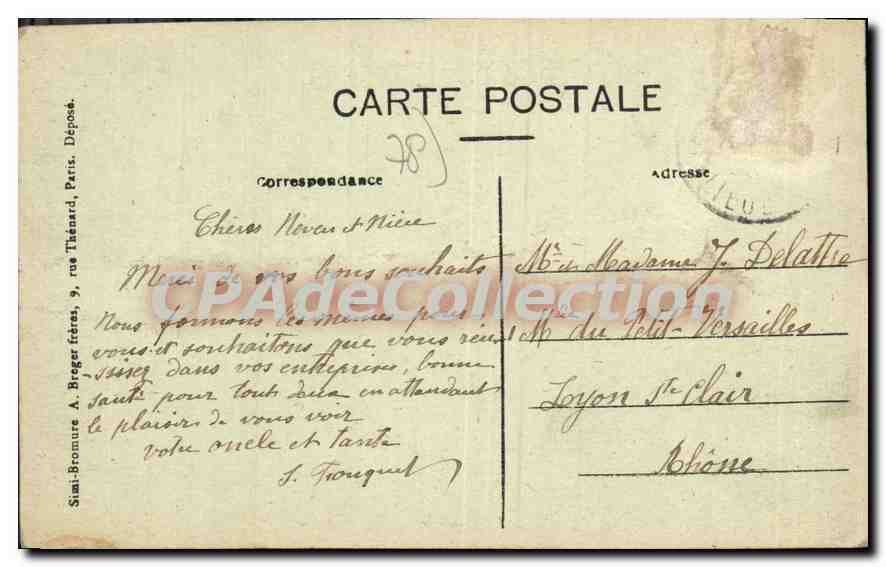 CARTE POSTALE
78
Correspondance
Adresse
Chères Neveu et Nièce
Merci de vos bons souhaits
Nous formons les mêmes pour
vous et souhaitons que vous réus
sisez dans vos entreprises, bonne
santé pour tout deux en attendant
le plaisir de vous voir
votre oncle et tante
S. Fouquet
Mr et Madame J. Delattre
du Petit-Versailles
Lyon St Clair
Rhône
Simi-Bromure A. Breger frères, 9, rue Thénard, Paris. Déposé.
CPAdeCollection.com